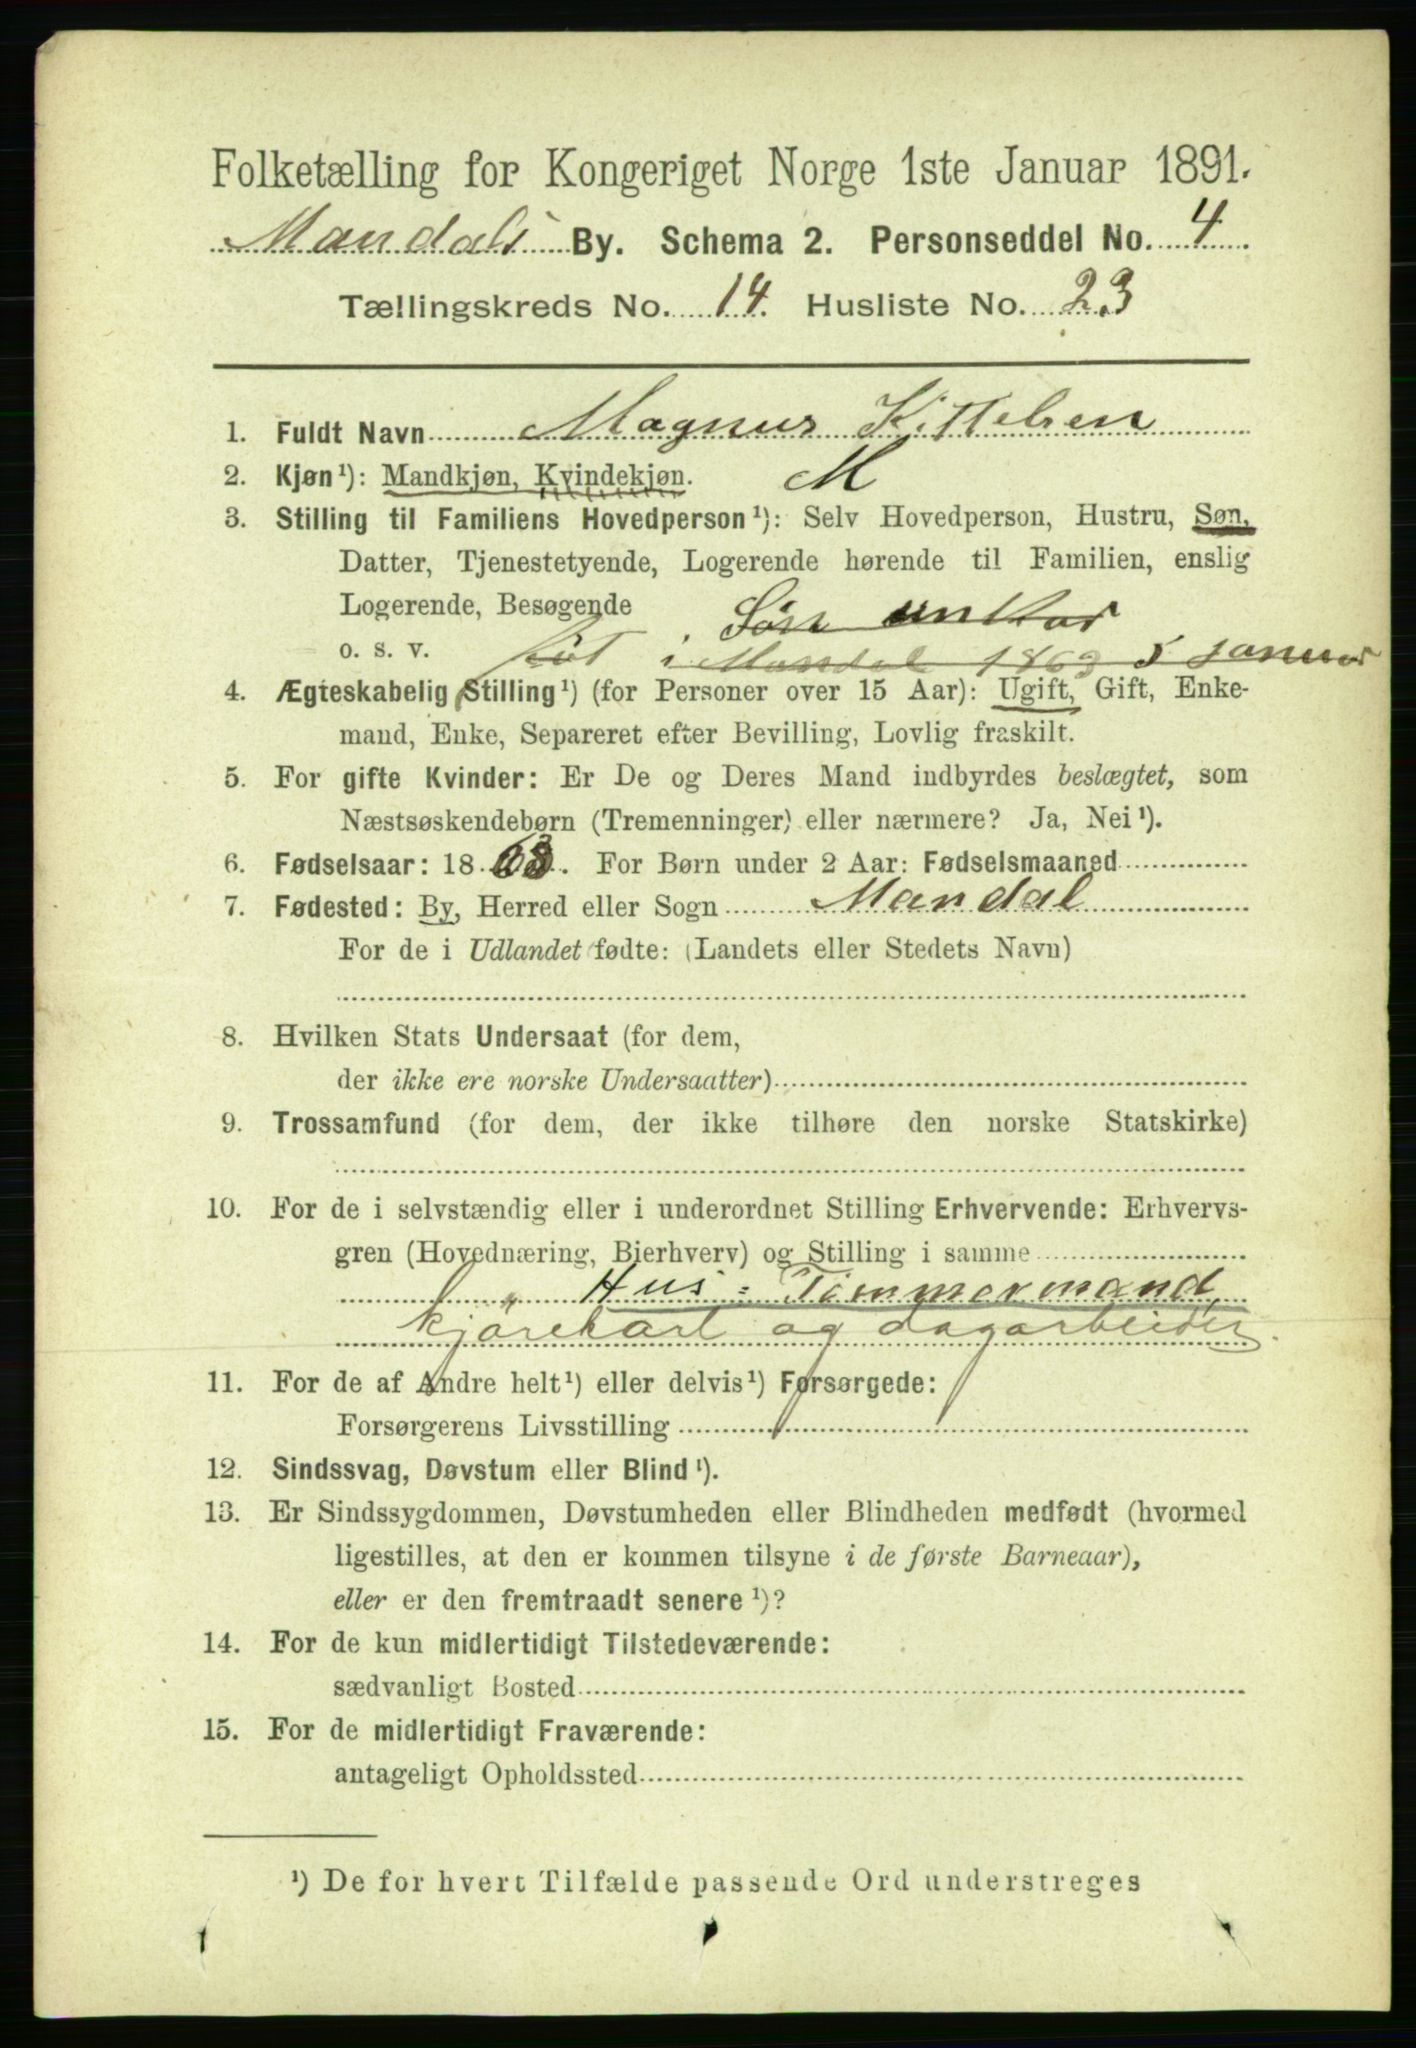 Folketælling for Kongeriget Norge 1ste Januar 1891.
Mandals By. Schema 2. Personseddel No. 4
Tællingskreds No. 14. Husliste No. 23
1. Fuldt Navn Magnus Kittelsen
2. Kjøn¹): Mandkjøn, Kvindekjøn. M
3. Stilling til Familiens Hovedperson¹): Selv Hovedperson, Hustru, Søn,
Datter, Tjenestetyende, Logerende hørende til Familien, enslig
Logerende, Besøgende Sön unkar
o. s. v. föt i Mandal 1863 5 januar
4. Ægteskabelig Stilling¹) (for Personer over 15 Aar): Ugift, Gift, Enke-
mand, Enke, Separeret efter Bevilling, Lovlig fraskilt.
5. For gifte Kvinder: Er De og Deres Mand indbyrdes beslægtet, som
Næstsøskendebørn (Tremenninger) eller nærmere? Ja, Nei¹).
6. Fødselsaar: 1863. For Børn under 2 Aar: Fødselsmaaned
7. Fødested: By, Herred eller Sogn Mandal
For de i Udlandet fødte: (Landets eller Stedets Navn)
8. Hvilken Stats Undersaat (for dem,
der ikke ere norske Undersaatter)
9. Trossamfund (for dem, der ikke tilhøre den norske Statskirke)
10. For de i selvstændig eller i underordnet Stilling Erhvervende: Erhvervs-
gren (Hovednæring, Bierhverv) og Stilling i samme
Hus-Tömmermand,
kjörekarl og dagarbeider.
11. For de af Andre helt¹) eller delvis¹) Forsørgede:
Forsørgerens Livsstilling
12. Sindssvag, Døvstum eller Blind¹).
13. Er Sindssygdommen, Døvstumheden eller Blindheden medfødt (hvormed
ligestilles, at den er kommen tilsyne i de første Barneaar),
eller er den fremtraadt senere¹)?
14. For de kun midlertidigt Tilstedeværende:
sædvanligt Bosted
15. For de midlertidigt Fraværende:
antageligt Opholdssted
¹) De for hvert Tilfælde passende Ord understreges